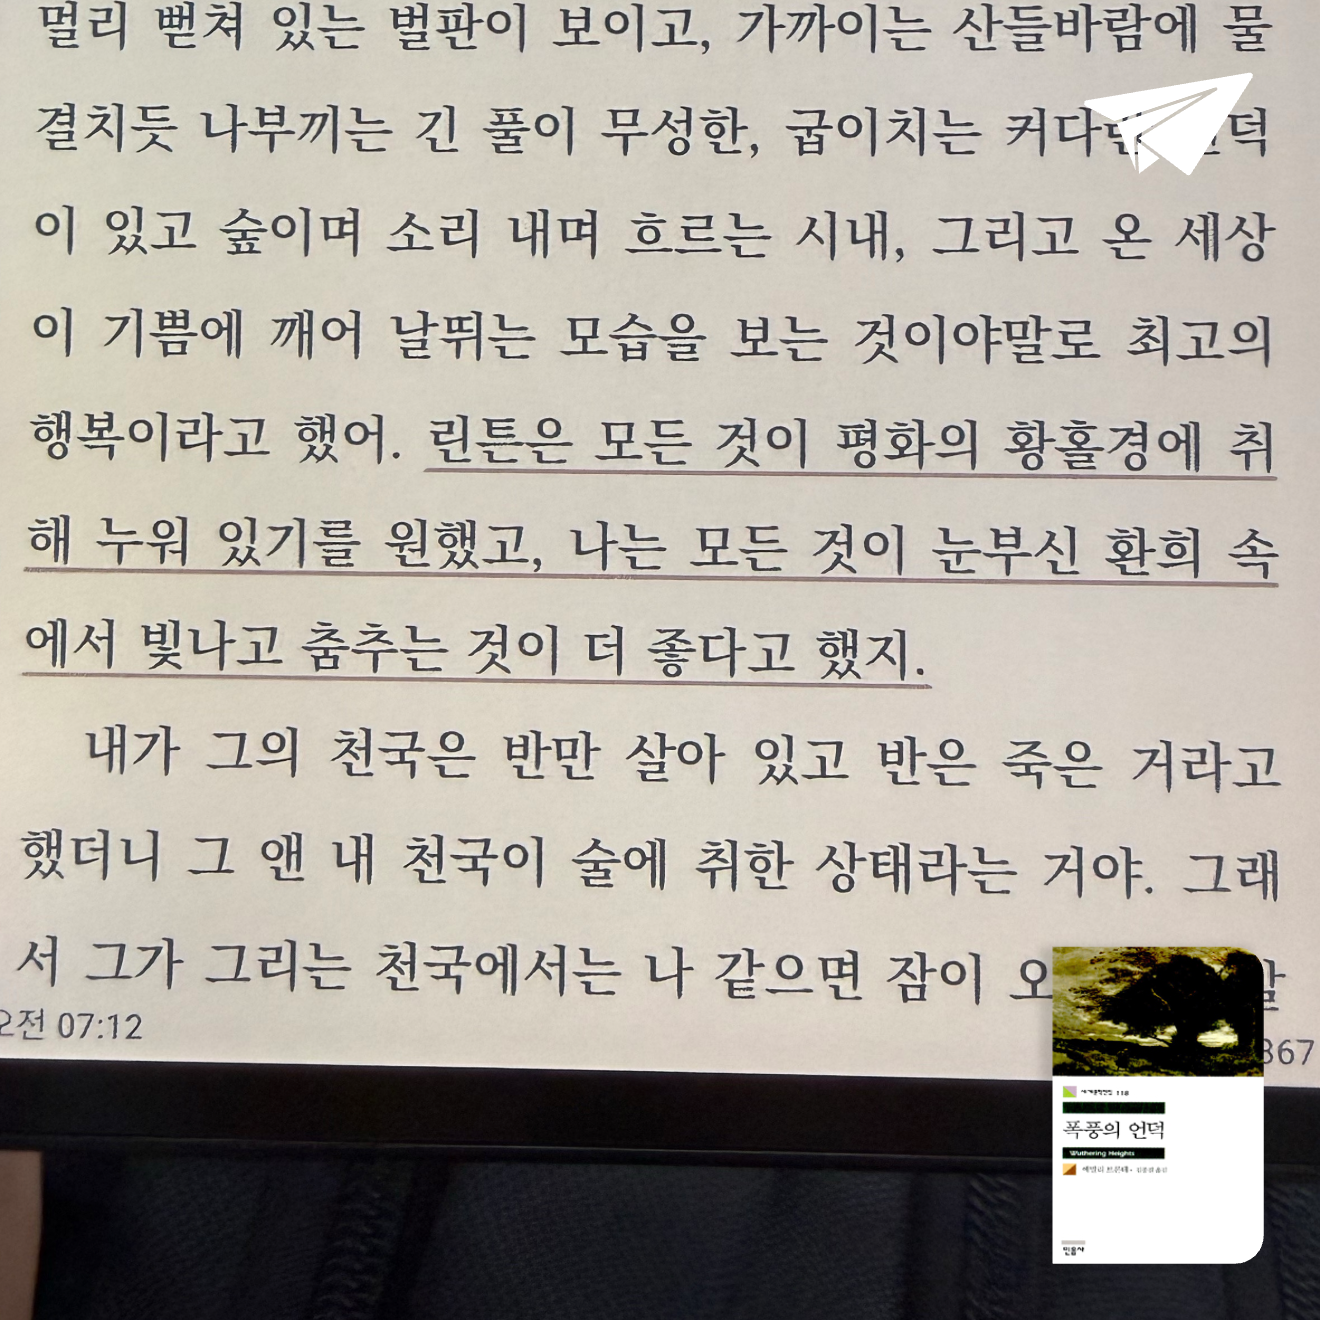 멀리 뻗쳐 있는 벌판이 보이고, 가까이는 산들바람에 물
결치듯 나부끼는 긴 풀이 무성한, 굽이치는 커다란 언덕
이 있고 숲이며 소리 내며 흐르는 시내, 그리고 온 세상
이 기쁨에 깨어 날뛰는 모습을 보는 것이야말로 최고의
행복이라고 했어. 린튼은 모든 것이 평화의 황홀경에 취
해 누워 있기를 원했고, 나는 모든 것이 눈부신 환희 속
에서 빛나고 춤추는 것이 더 좋다고 했지.
내가 그의 천국은 반만 살아 있고 반은 죽은 거라고
했더니 그 앤 내 천국이 술에 취한 상태라는 거야. 그래
서 그가 그리는 천국에서는 나 같으면 잠이
오전 07:12
367
세계문학전집 118
폭풍의 언덕
Wuthering Heights
에밀리 브론테
민음사